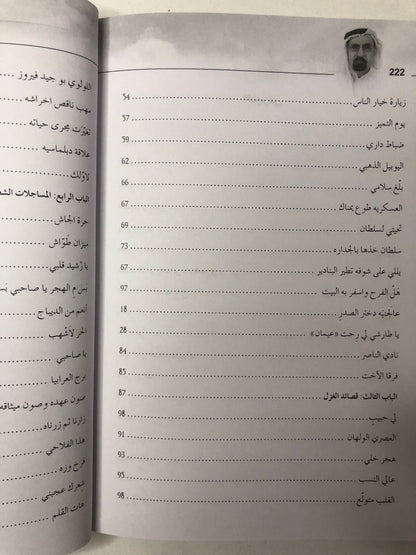 222
زيارة خيار الناس 54
يوم التميز 57
ضباط داري 59
اليوبيل الذهبي 62
بلّغ سلامي 66
العسكريه طوع يمناك 67
تحيتي لسلطان 69
سلطان خذها بالجداره 73
يللي على شوفه تطير البنادير 67
هَلّ الفرح واسفر به البيت 97
عالجنبَه دختر الصدر 18
يا طارشي لي رحت «عيمان» 28
نادي الناصر 84
فرقا الأخت 85
الباب الثالث: قصائد الغزل 87
لي حبيبٍ 98
العصري الولهان 91
هجر خلي 93
عالي النسب 95
القلب متولّع 98
اللولوي بو جيد فيروز
مهب ناقص اخراشه
تغيّرت مجرى حياته
علاقة دبلماسيه
لاوّلك
الباب الرابع: المساجلات
حرة الجاش
ميزان طَوّاش
يا رْشيد قلبي
بَس مِ الهجر يا صاحبي
أنعم من الديباج
الحر لاَشْهب
يا صاحبي
برج العرابيا
صون عهده وصون ميثاقه
زارنا ثم زرناه
هذا الفلاحي
فرج وزه
شعرك عجبني
هات القلم